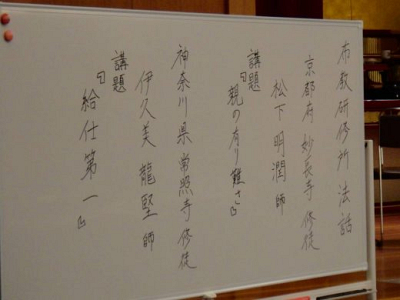 布教研修所法話
京都府妙長寺修徒
松下明潤師
講題
『親の有り難さ』
神奈川県常照寺修徒
伊久美龍堅師
講題
『給仕第一』